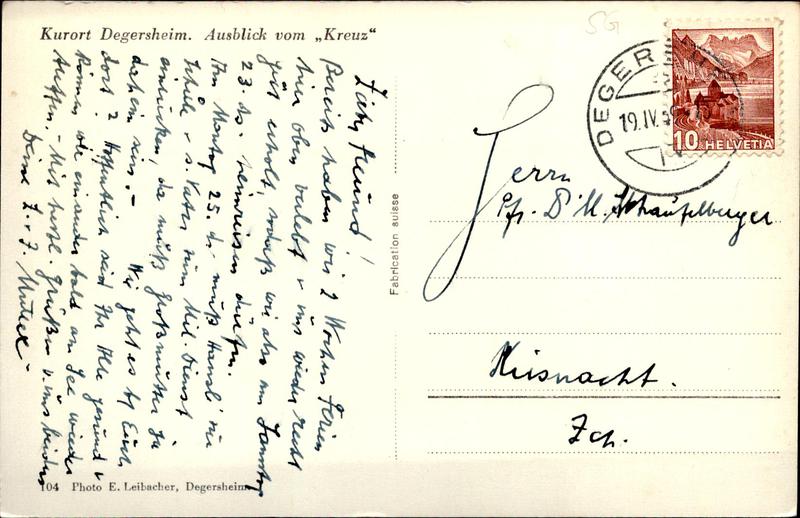 Kurort Degersheim. Ausblick vom „Kreuz"
SG
DEGERSHEIM
19.IV.
10 HELVETIA
Lieber Freund!
Bereits haben wir 2 Wochen Ferien
hier oben verlebt & uns wieder recht
gut erholt, sodaß wir also am Samstag
23. ds. heimreisen dürfen.
Am Montag 25. ds. muß Hansli zur
Schule & s. Vater zum Mil. Dienst
einrücken, da muß Großmutter ja
daheim sein. - Wie geht es by Euch
dort? Hoffentlich seid Ihr Alle gesund &
können wir einander bald am See wieder
treffen. - Mit herzl. Grüßen v. uns beiden
Deine L. & J.
Fabrication suisse
Herrn
Pfr. D M. Schaufelberger
Küsnacht.
Zch.
104 Photo E. Leibacher, Degersheim